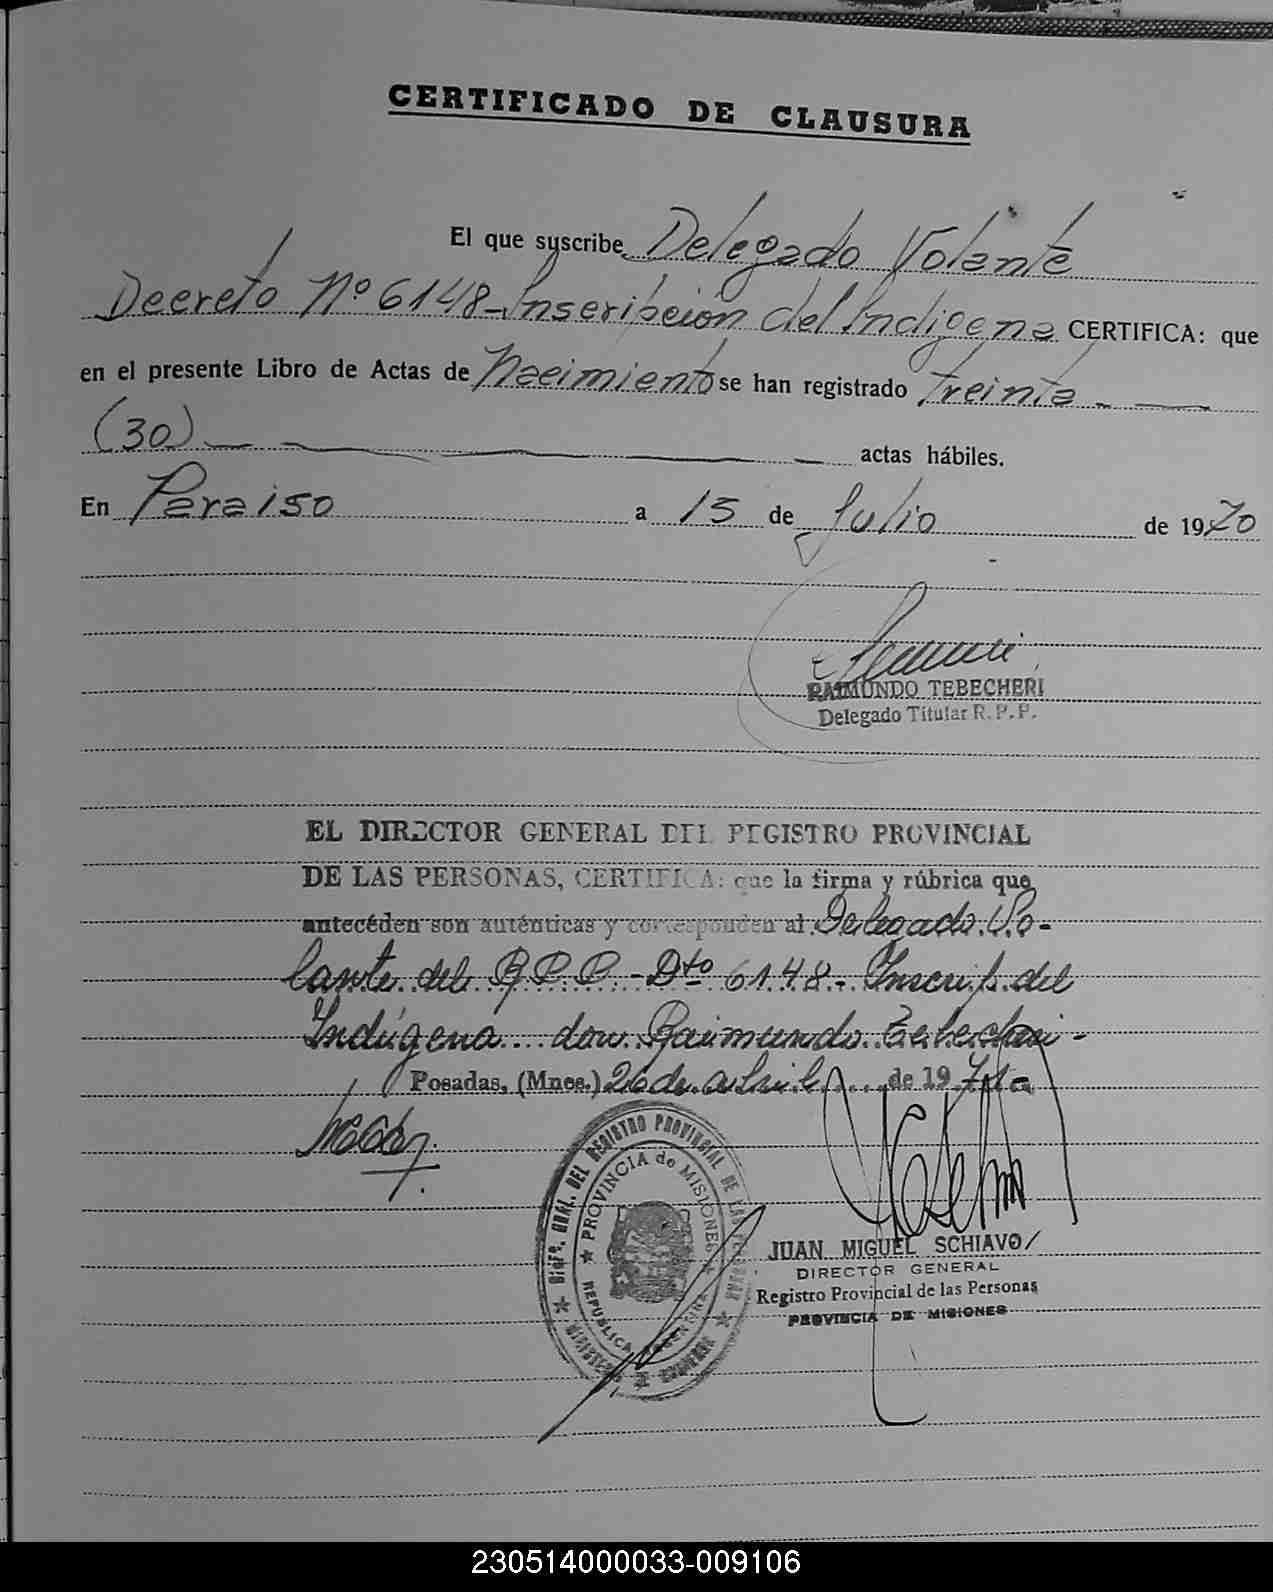 CERTIFICADO DE CLAUSURA
El que suscribe Delegado Volante
Decreto Nº 6148 - Inscripción del Indigena CERTIFICA: que
en el presente Libro de Actas de Nacimiento se han registrado treinta - —
(30) — — actas hábiles.
En Paraiso a 15 de Julio de 1970
RAIMUNDO TEBECHERI
Delegado Titular R. P. P.
EL DIRECTOR GENERAL DEL REGISTRO PROVINCIAL
DE LAS PERSONAS, CERTIFICA: que la firma y rúbrica que
antecéden son auténticas y corresponden al Delegado Vo-
lante del R P P - Dto 6148 - Inscrip. del
Indígena don Raimundo Tebecheri -
Posadas, (Mnes.) 26 de abril de 1971 -
DIREC. GRAL. DEL REGISTRO PROVINCIAL DE LAS PERSONAS
PROVINCIA de MISIONES
REPUBLICA ARGENTINA
MINISTERIO DE GOBIERNO
JUAN MIGUEL SCHIAVO
DIRECTOR GENERAL
Registro Provincial de las Personas
PROVINCIA DE MISIONES
230514000033-009106